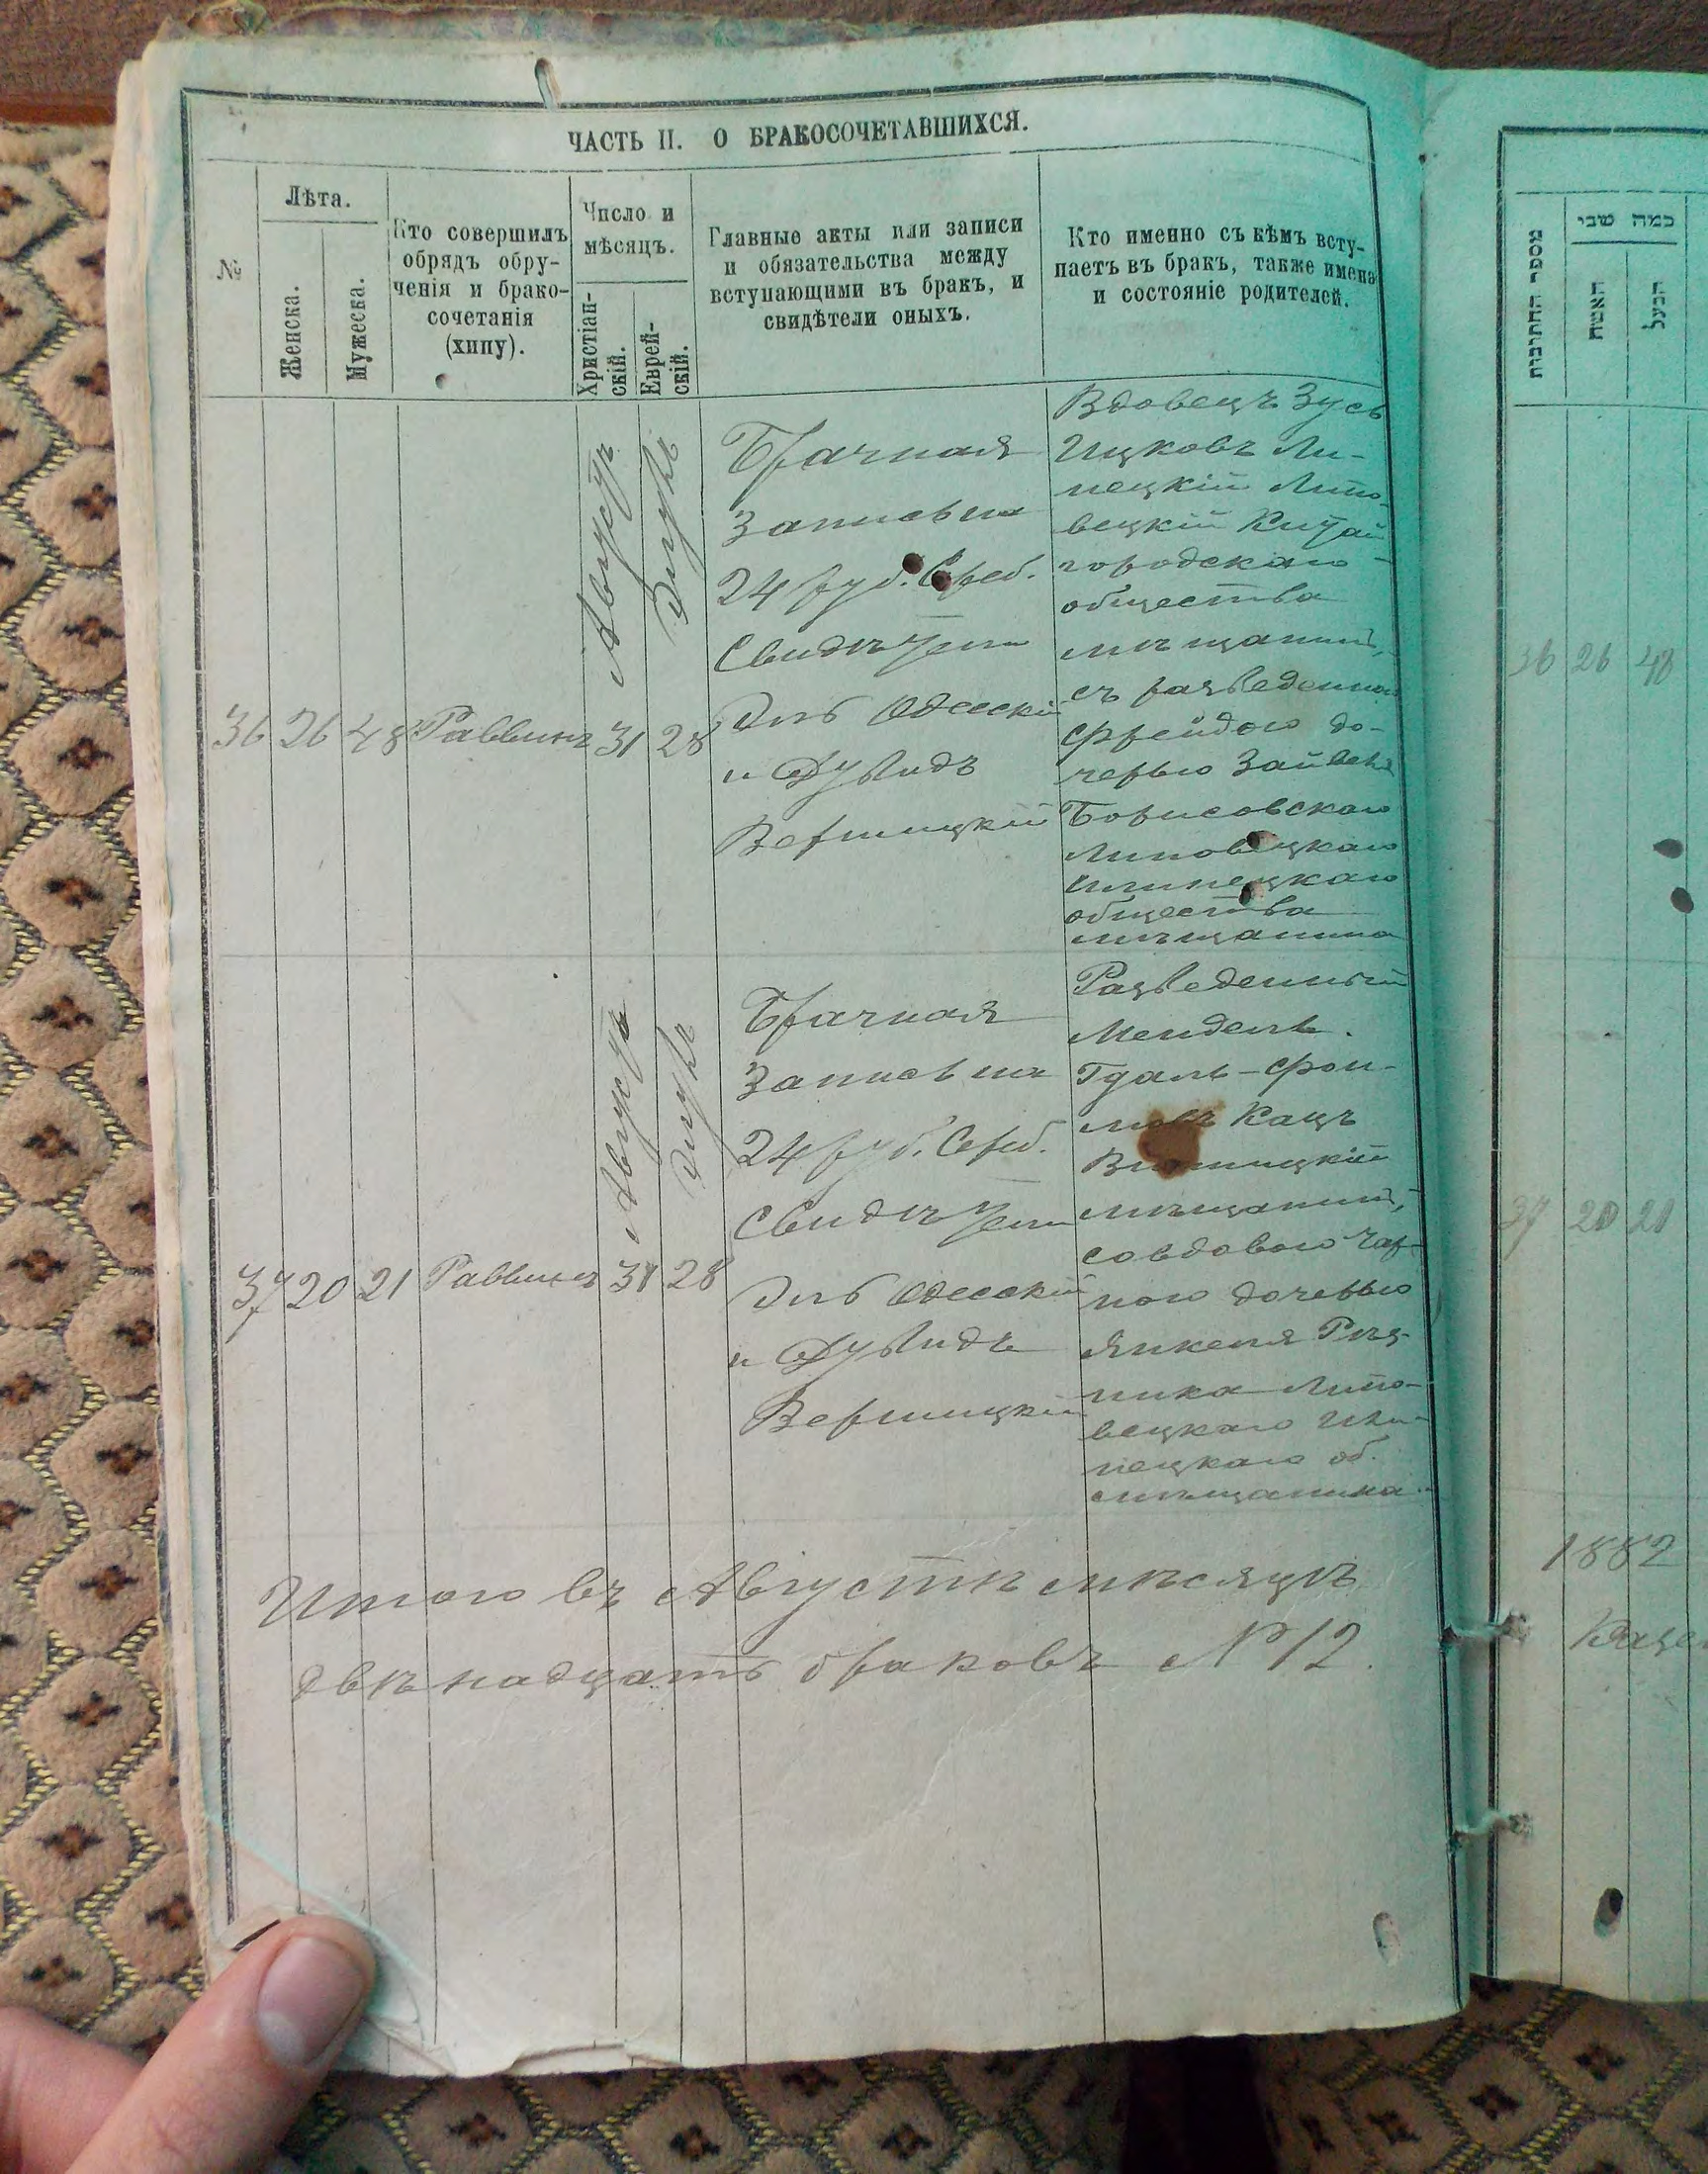 ЧАСТЬ II. О БРАКОСОЧЕТАВШИХСЯ.
№
Лѣта.
Женска.
Мужеска.
Кто совершилъ
обрядъ обру-
ченія и брако-
сочетанія
(хипу).
Число и
мѣсяцъ.
Христіан-
скій.
Еврей-
скій.
Главные акты или записи
и обязательства между
вступающими въ бракъ, и
свидѣтели оныхъ.
Кто именно съ кѣмъ всту-
паетъ въ бракъ, также имена
и состояніе родителей.
36
26
48
Раввинъ
Августъ
31
Элулъ
28
Брачная
Запись на
24 руб. Сереб.
Свидѣтели
Одесскій
и Дувидъ
Верницкій
Вдовецъ Зусь
Ицковъ Ли-
пецкій Липо-
вецкій Китай
городскаго
общества
мѣщанинъ,
съ разведенною
Фрейдою до-
черью
Борисовскаго
Липовецкаго
Илинецкаго
общества
мѣщанина
37
20
21
Раввинъ
Августа
31
Элулъ
28
Брачная
Запись на
24 руб. Сереб.
Свидѣтели
Одесскій
и Дувидъ
Верницкій
Разведенный
Мендель
Гдаль-Фои-
мовъ Кацъ
Винницкій
мѣщанинъ,
со вдовою Чар-
ною дочерью
Янкеля Рѣз-
ника Липо-
вецкаго Или-
нецкаго об.
мѣщанина
Итого въ Августѣ мѣсяцѣ
двѣнадцать браковъ № 12.
מספר החתונות
כמה שני
האשה
הבעל
36 26 48
37 20 21
1882